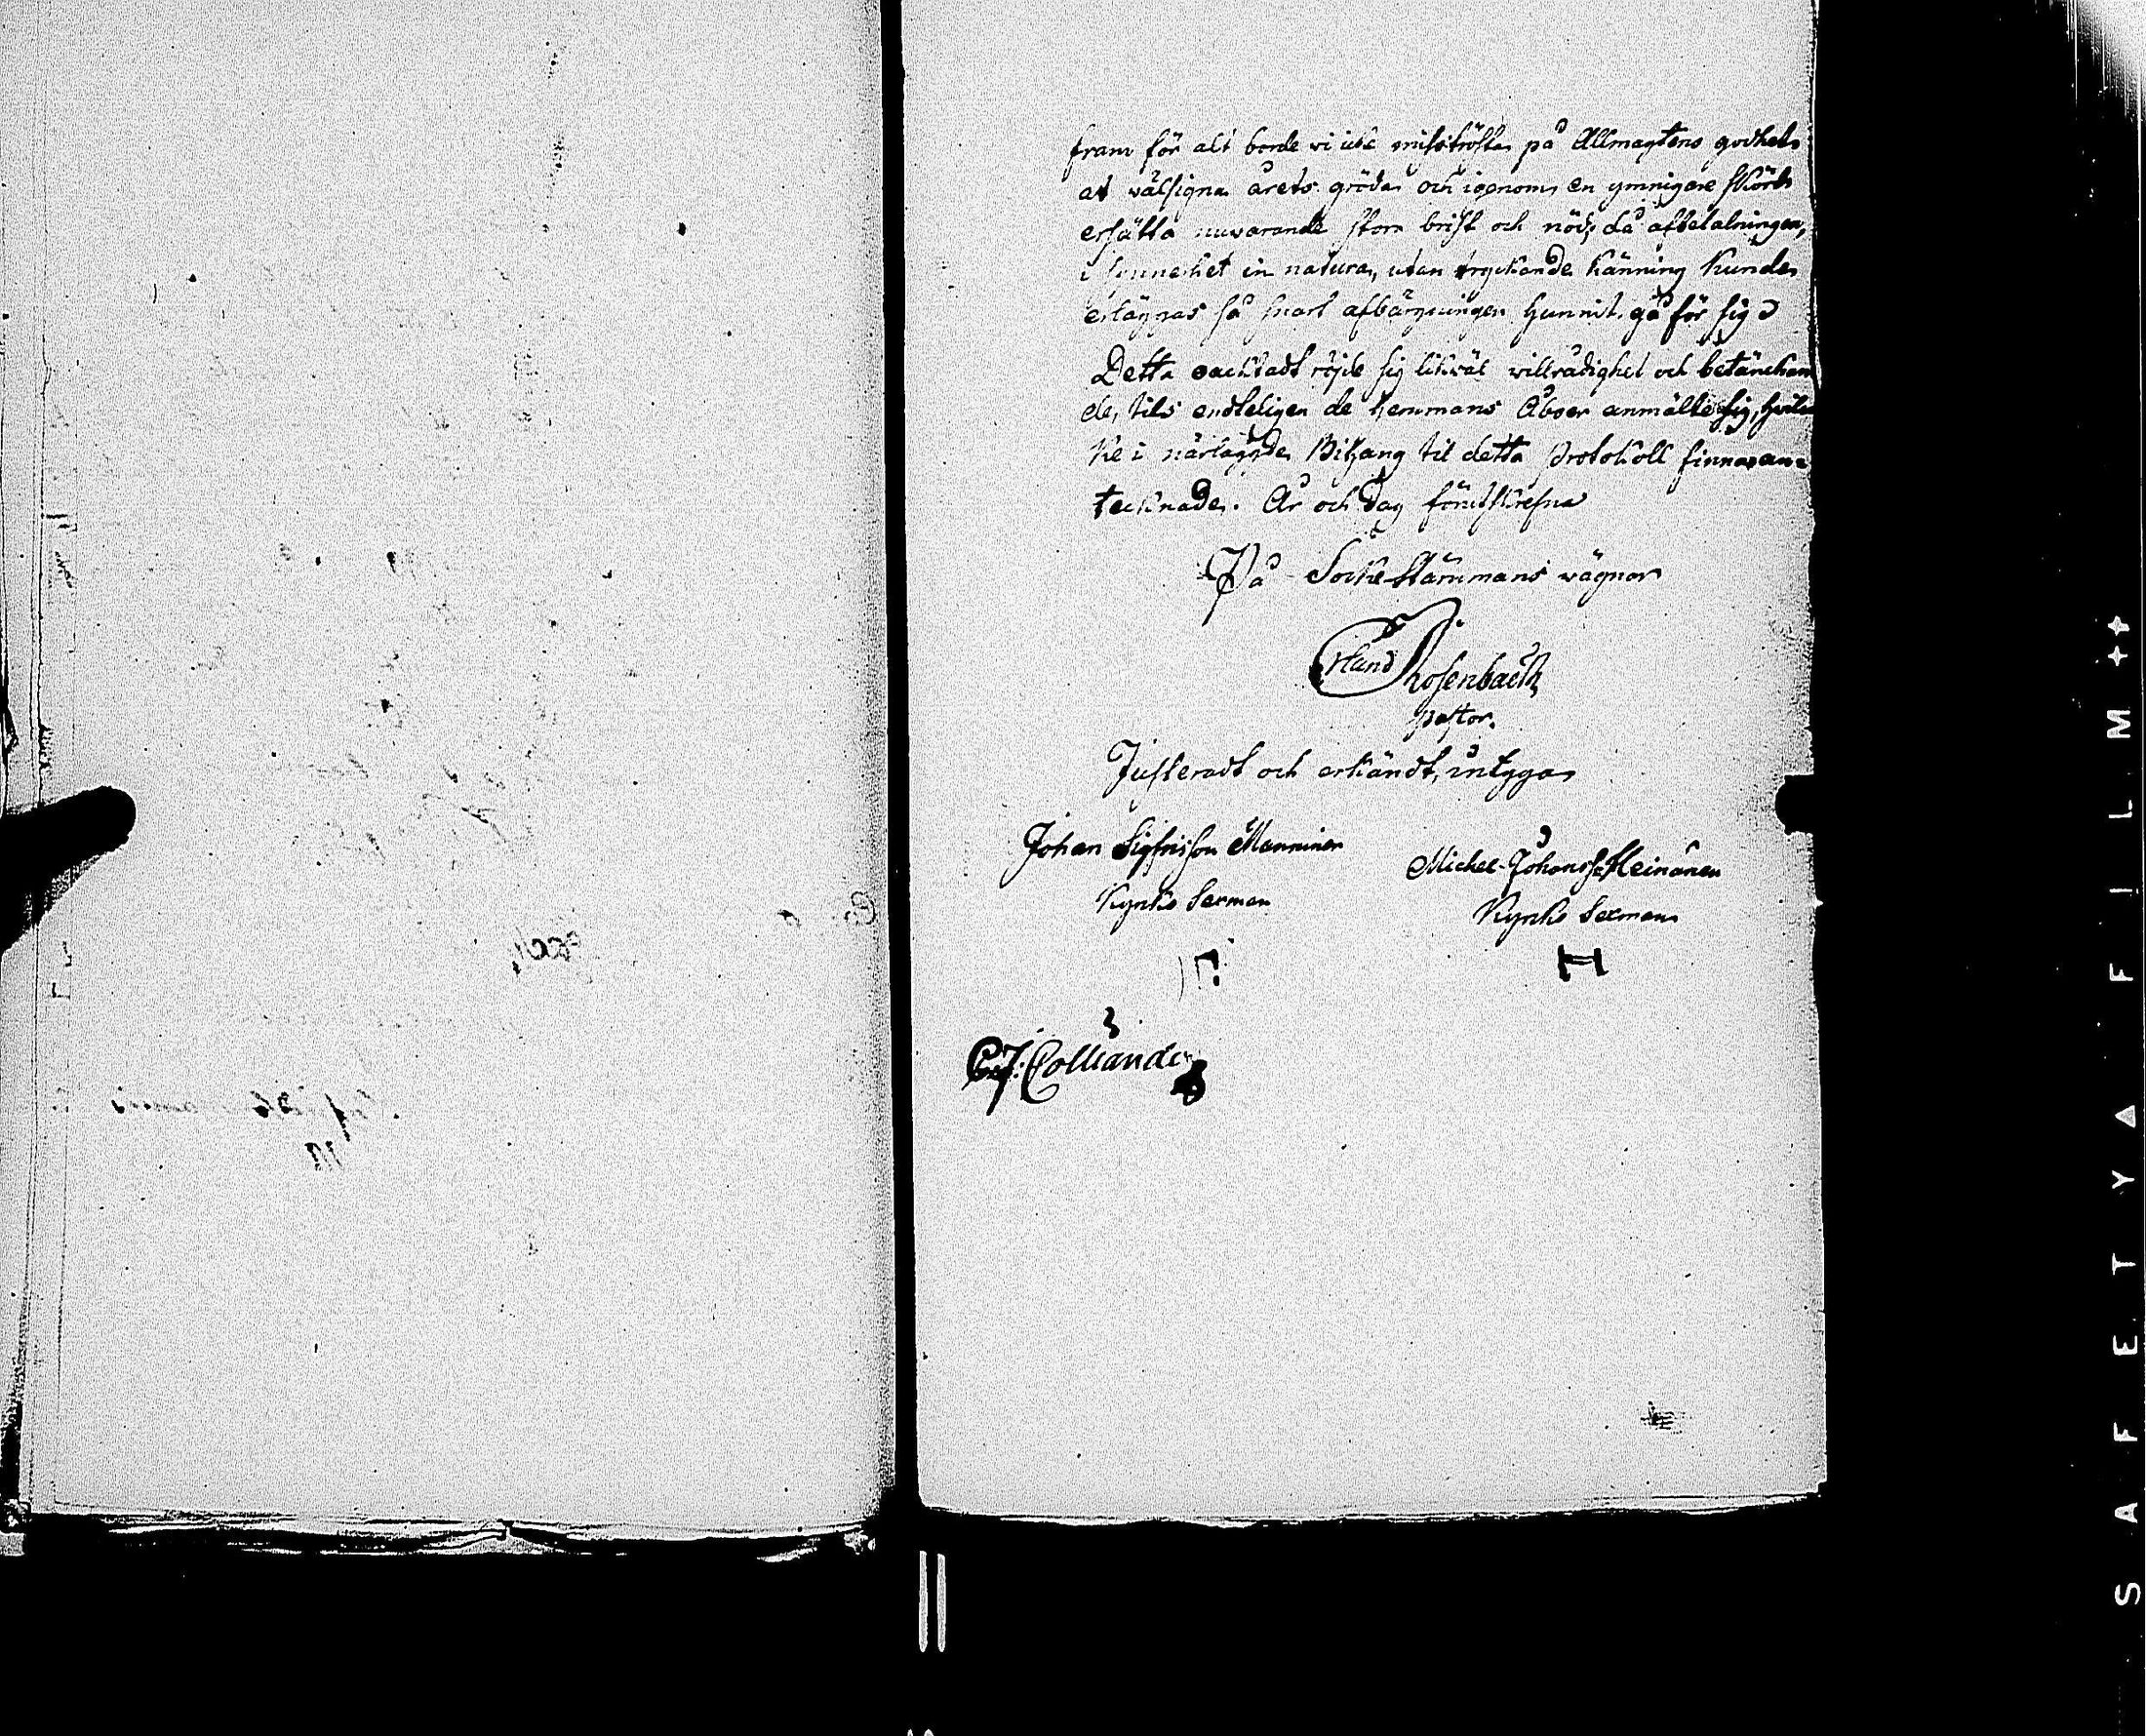 fram för alt borde vi icke misströsta på Allmagtens godhet
at välsigna årets gröda och igenom en ymnigare skörd
ersätta nuvarande stora brist och nöd, då afbetalningen,
i synnerhet in natura, utan tryckande känning kunde
erläggas så snart afbärgningen hunnit gå för sig
Detta oacktadt röjde sig likväl villrådighet och betänckan
de, tils endteligen de hemmans Åboer anmälte sig, hvil
ke i närlagde Bihang til detta Protokoll finnas an=
tecknade. År och dag förutskrefne
På Sockestämmans vägnar
Erland Rosenback
pastor.
Justeradt och erkändt, intyga
Johan Sigfrisson Manninen
Michel Johanss: Heinänen
Kyrko Sexman
Kyrko Sexman
H
C. J. Colliander
S A F E T Y F I L M